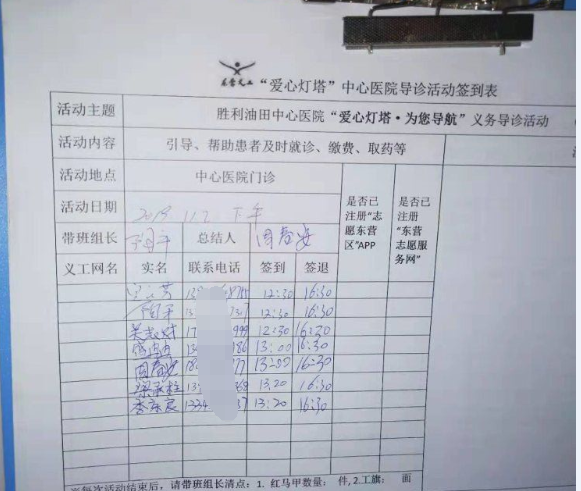 东营义工 “爱心灯塔”中心医院导诊活动签到表
活动主题 胜利油田中心医院“爱心灯塔·为您导航”义务导诊活动
活动内容 引导、帮助患者及时就诊、缴费、取药等
活动地点 中心医院门诊
是否已注册“志愿东营区”APP
是否已注册“东营志愿服务网”
活动日期 2019 11.2 下午
带班组长 总结人 周春安
义工网名 实名 联系电话 签到 签退
12:30 16:30
周平 12:30 16:30
999 12:30 16:30
186 13:00 16:30
周春安 13:00 16:30
13.20 16:30
1334 13:20 16:30
每次活动结束后，请带班组长清点：1. 红马甲数量： 件,2.工旗： 面